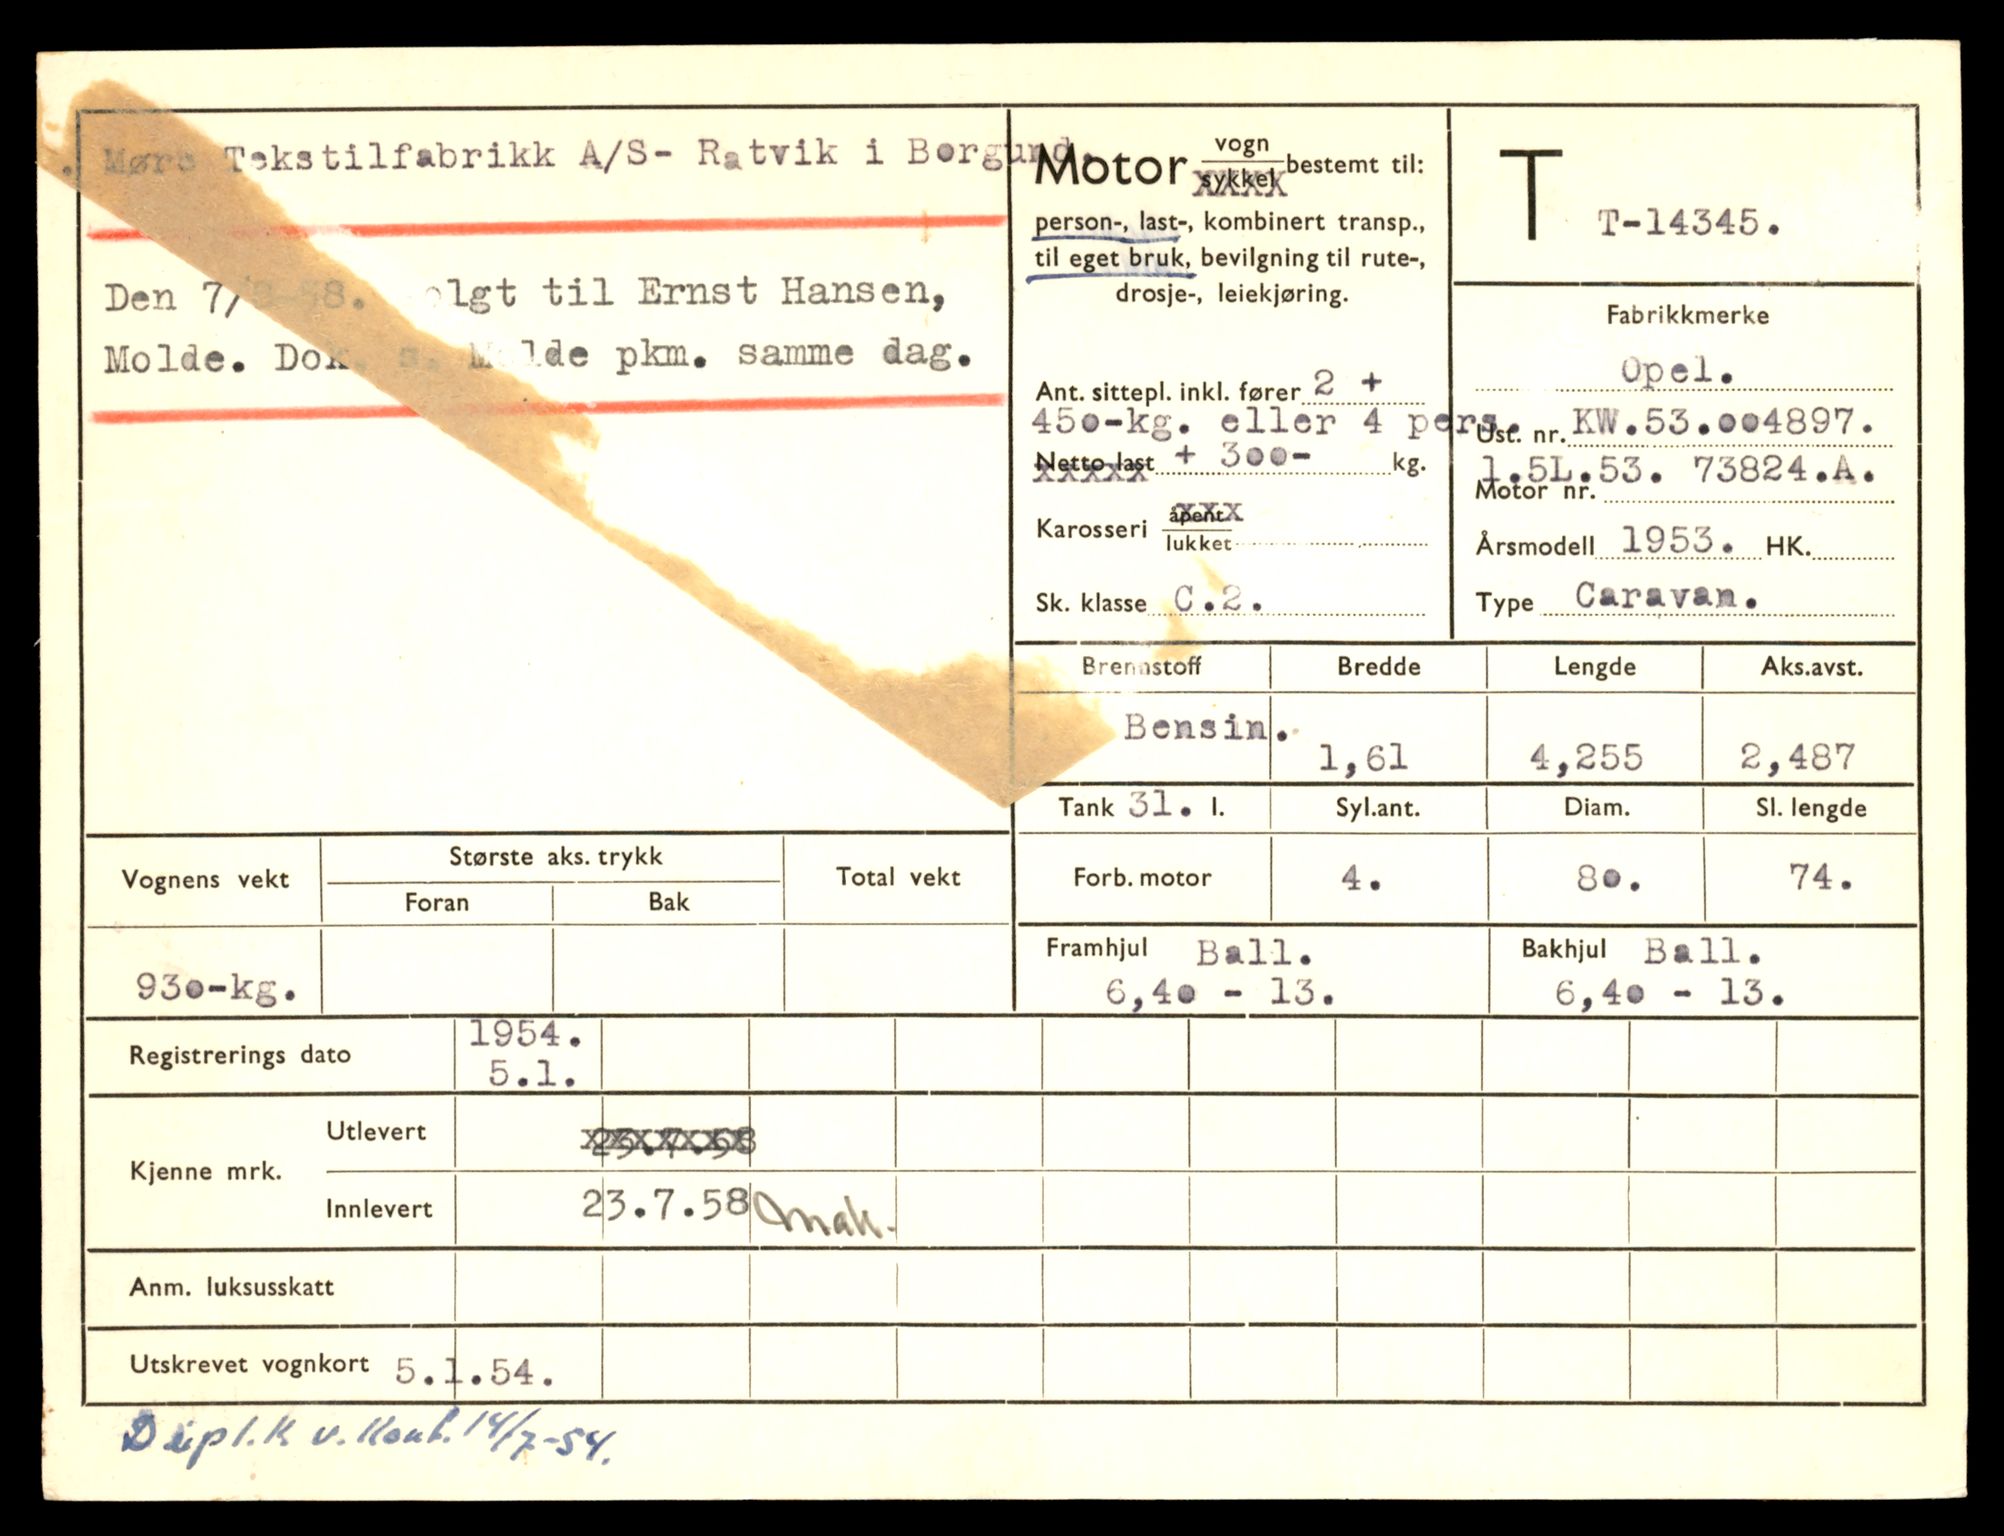 Møre Tekstilfabrikk A/S- Ratvik i Borgund.
Den 7/8-58. solgt til Ernst Hansen,
Molde. Dok. s. Molde pkm. samme dag.
Motor vogn sykkel bestemt til:
person-, last-, kombinert transp.,
til eget bruk, bevilgning til rute-,
drosje-, leiekjøring.
Ant. sittepl. inkl. fører 2 +
450-kg. eller 4 pers.
Netto last + 300- kg.
Karosseri åpent lukket
Sk. klasse C.2.
T T-14345.
Fabrikkmerke
Opel.
Ust. nr. KW.53.004897.
1.5L.53. 73824.A.
Motor nr.
Årsmodell 1953. HK.
Type Caravan.
Brennstoff Bredde Lengde Aks.avst.
Bensin. 1,61 4,255 2,487
Tank 31. l. Syl.ant. Diam. Sl. lengde
Forb. motor 4. 80. 74.
Framhjul Ball. Bakhjul Ball.
6,40 - 13. 6,40 - 13.
Vognens vekt Største aks. trykk Total vekt
Foran Bak
930-kg.
Registrerings dato 1954.
5.1.
Kjenne mrk.
Utlevert 23.7.58
Innlevert 23.7.58
Anm. luksusskatt
Utskrevet vognkort 5.1.54.
Dupl.k v. Kont. 14/7-54.